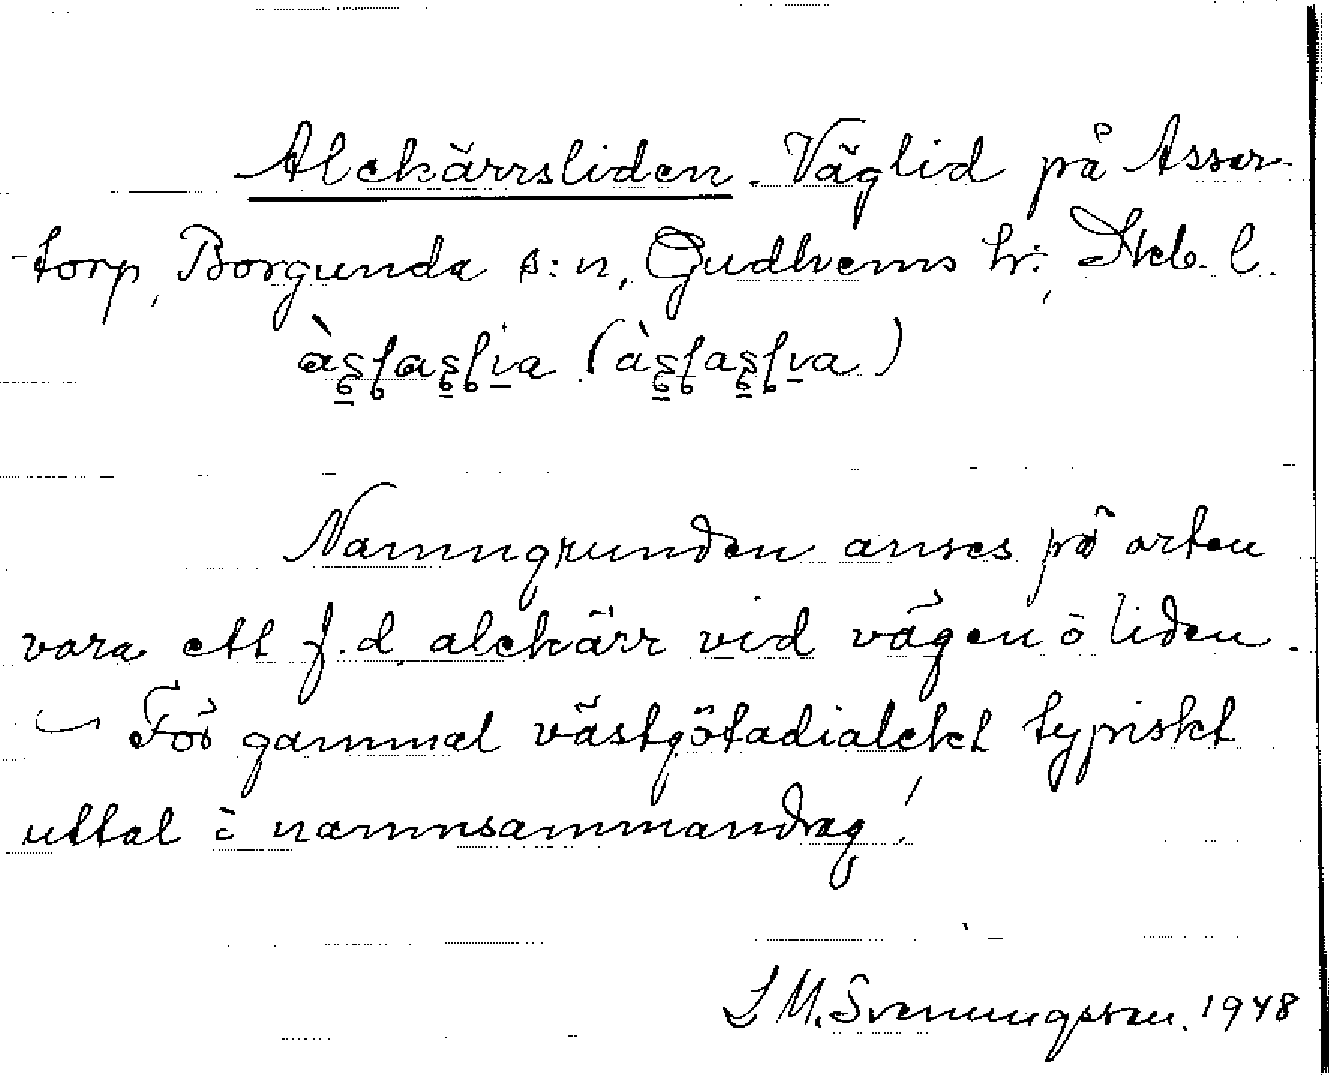 Alekärrsliden. Väglid på Asser-
-torp, Borgunda s:n, Gudhems hr; Skb. l.
Namngrunden anses på orten
vara ett f.d. alekärr vid vägen i liden.
— För gammal västgötadialekt typiskt
uttal i namnsammandrag!
L M. Svenungsson. 1948